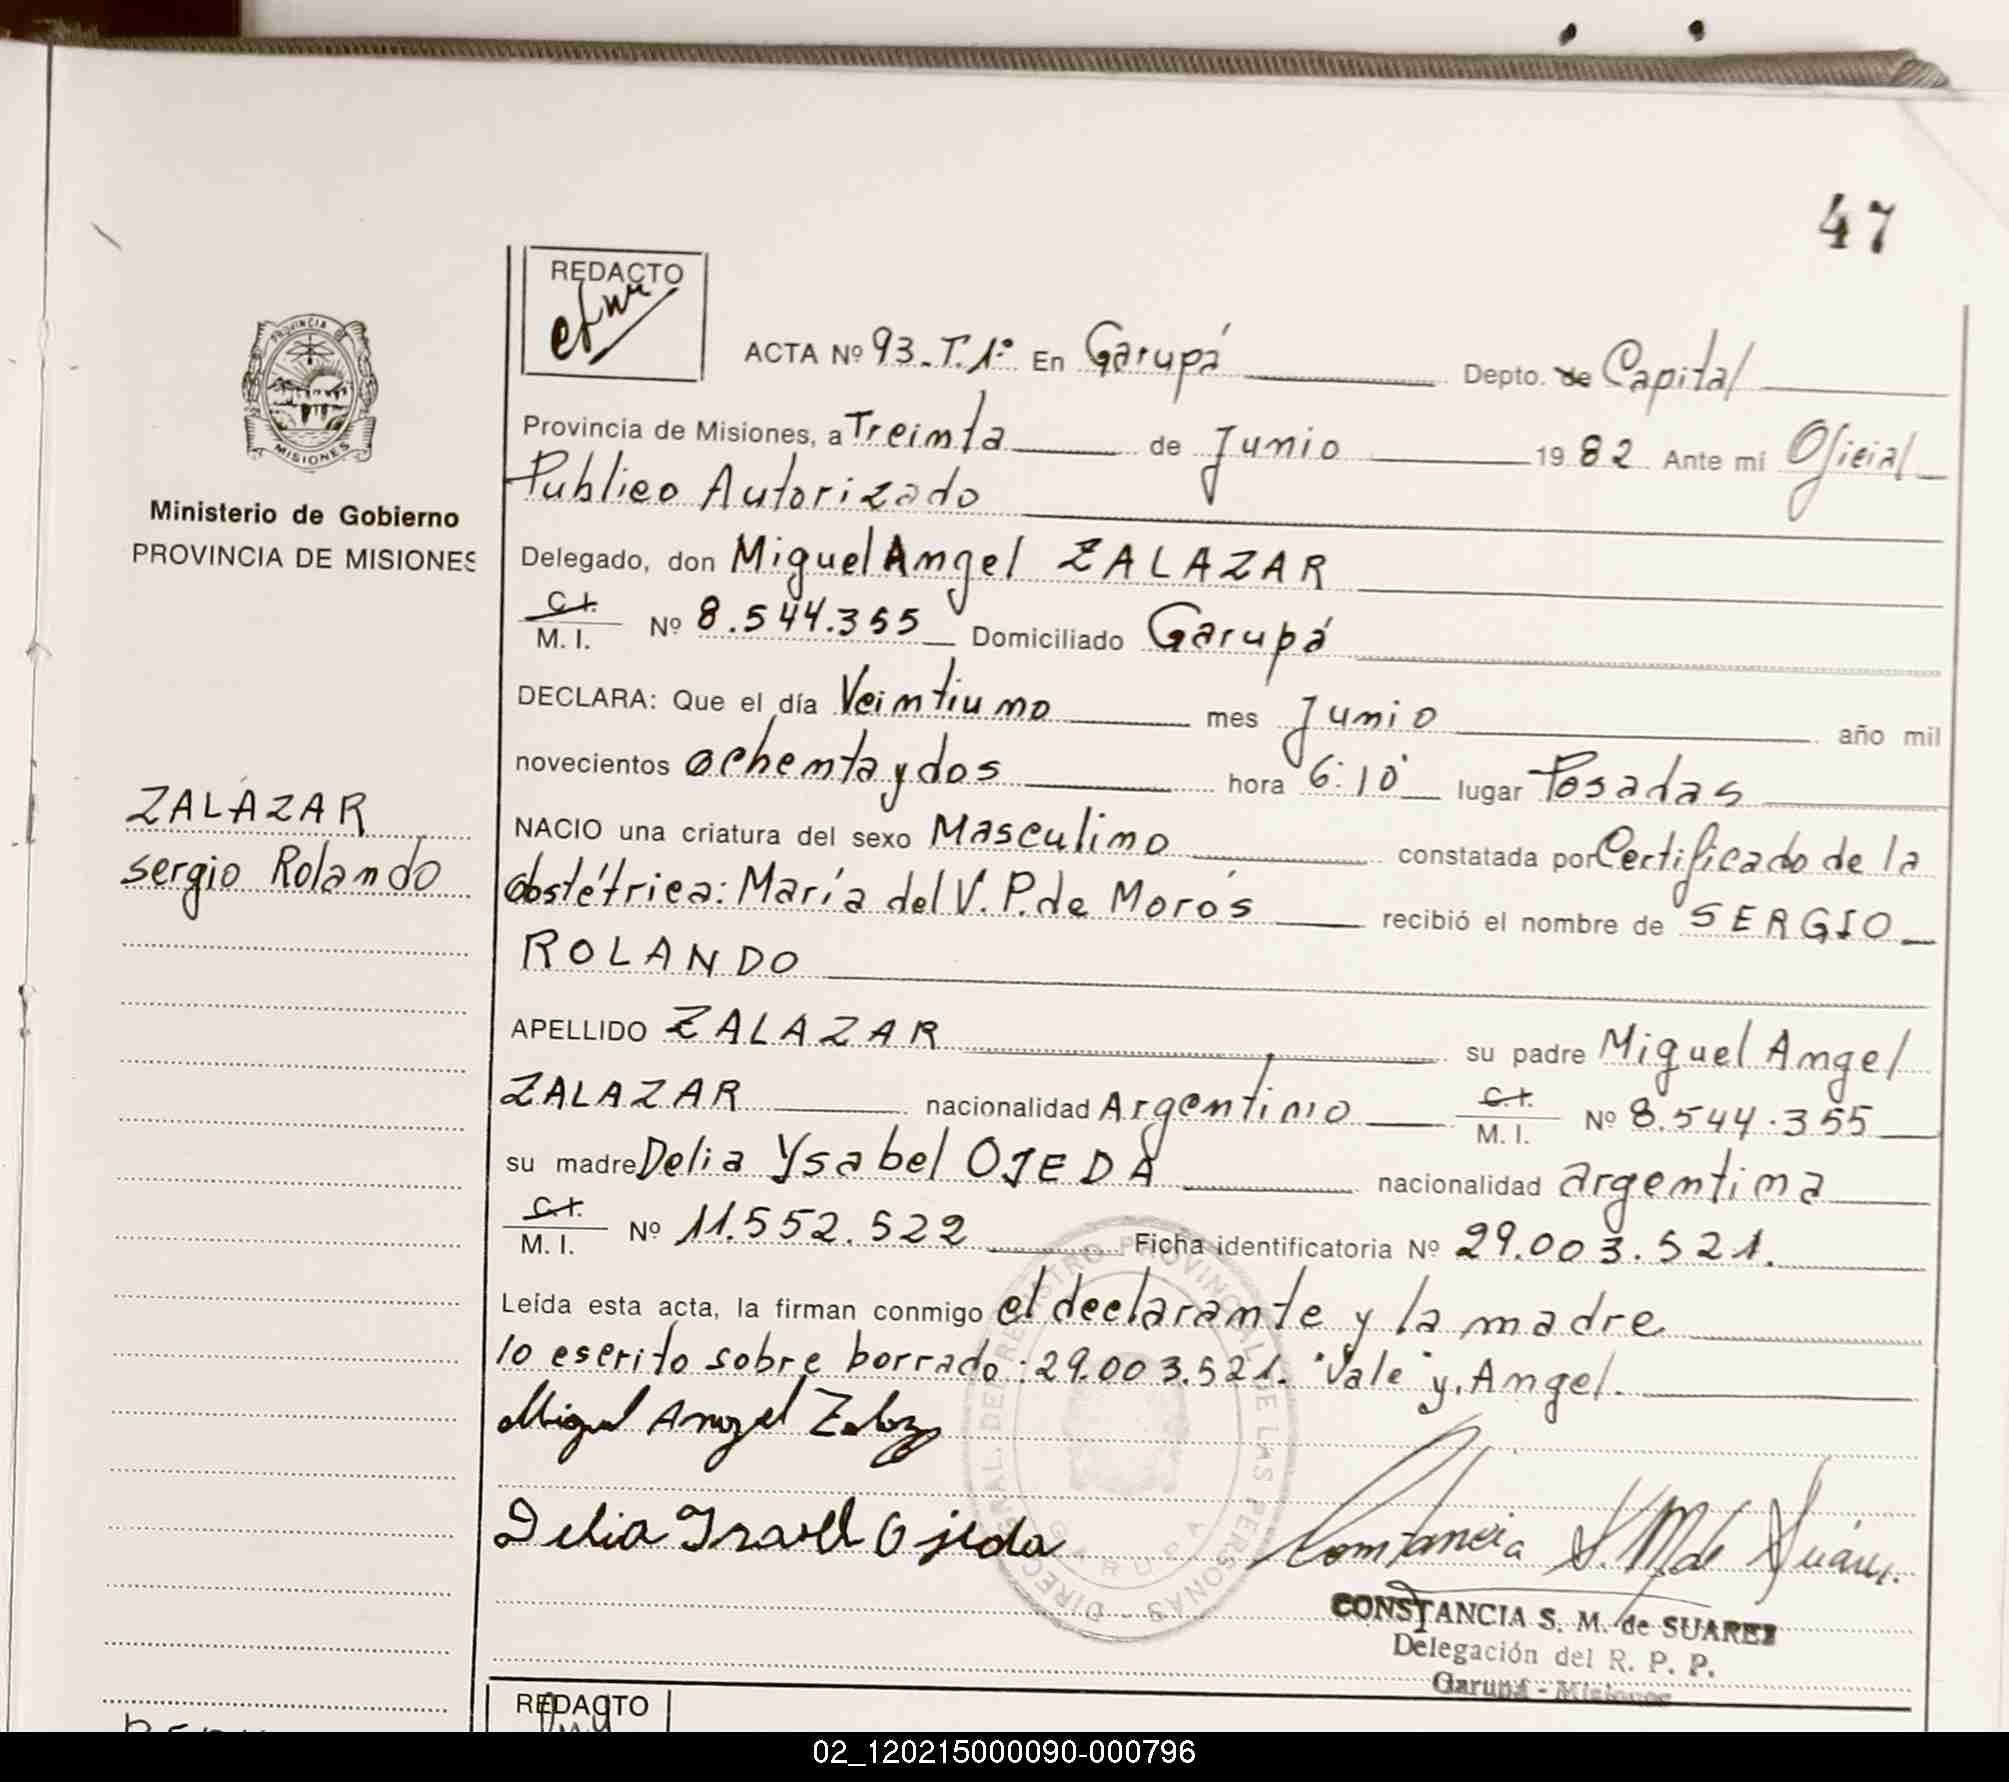 47
REDACTO
ACTA Nº 93_T.1º En Garupá Depto. de Capital
Provincia de Misiones, a Treinta de Junio 1982 Ante mí Oficial
Publico Autorizado
PROVINCIA DE
MISIONES
Ministerio de Gobierno
PROVINCIA DE MISIONES
Delegado, don Miguel Angel ZALAZAR
C.I.
M. I. Nº 8.544.355 Domiciliado Garupá
DECLARA: Que el día Veintiuno mes Junio año mil
novecientos ochenta y dos hora 6:10 lugar Posadas
ZALAZAR
sergio Rolando
NACIO una criatura del sexo Masculino constatada por Certificado de la
obstétrica: María del V. P. de Morós recibió el nombre de SERGIO
ROLANDO
APELLIDO ZALAZAR su padre Miguel Angel
ZALAZAR nacionalidad Argentino C.I. M. I. Nº 8.544.355
su madre Delia Ysabel OJEDA nacionalidad argentina
C.I.
M. I. Nº 11.552.522 Ficha identificatoria Nº 29.003.521.
Leída esta acta, la firman conmigo el declarante y la madre
lo escrito sobre borrado: 29.003.521. "Vale" y, Angel.
Miguel Angel Zalaz
Delia Isabel Ojeda
Constancia S. M. de Suárez.
DIREC. GRAL. DEL REGISTRO PROVINCIAL DE LAS PERSONAS -
GARUPA
CONSTANCIA S. M. de SUAREZ
Delegación del R. P. P.
Garupá - Misiones
REDACTO
02_120215000090-000796